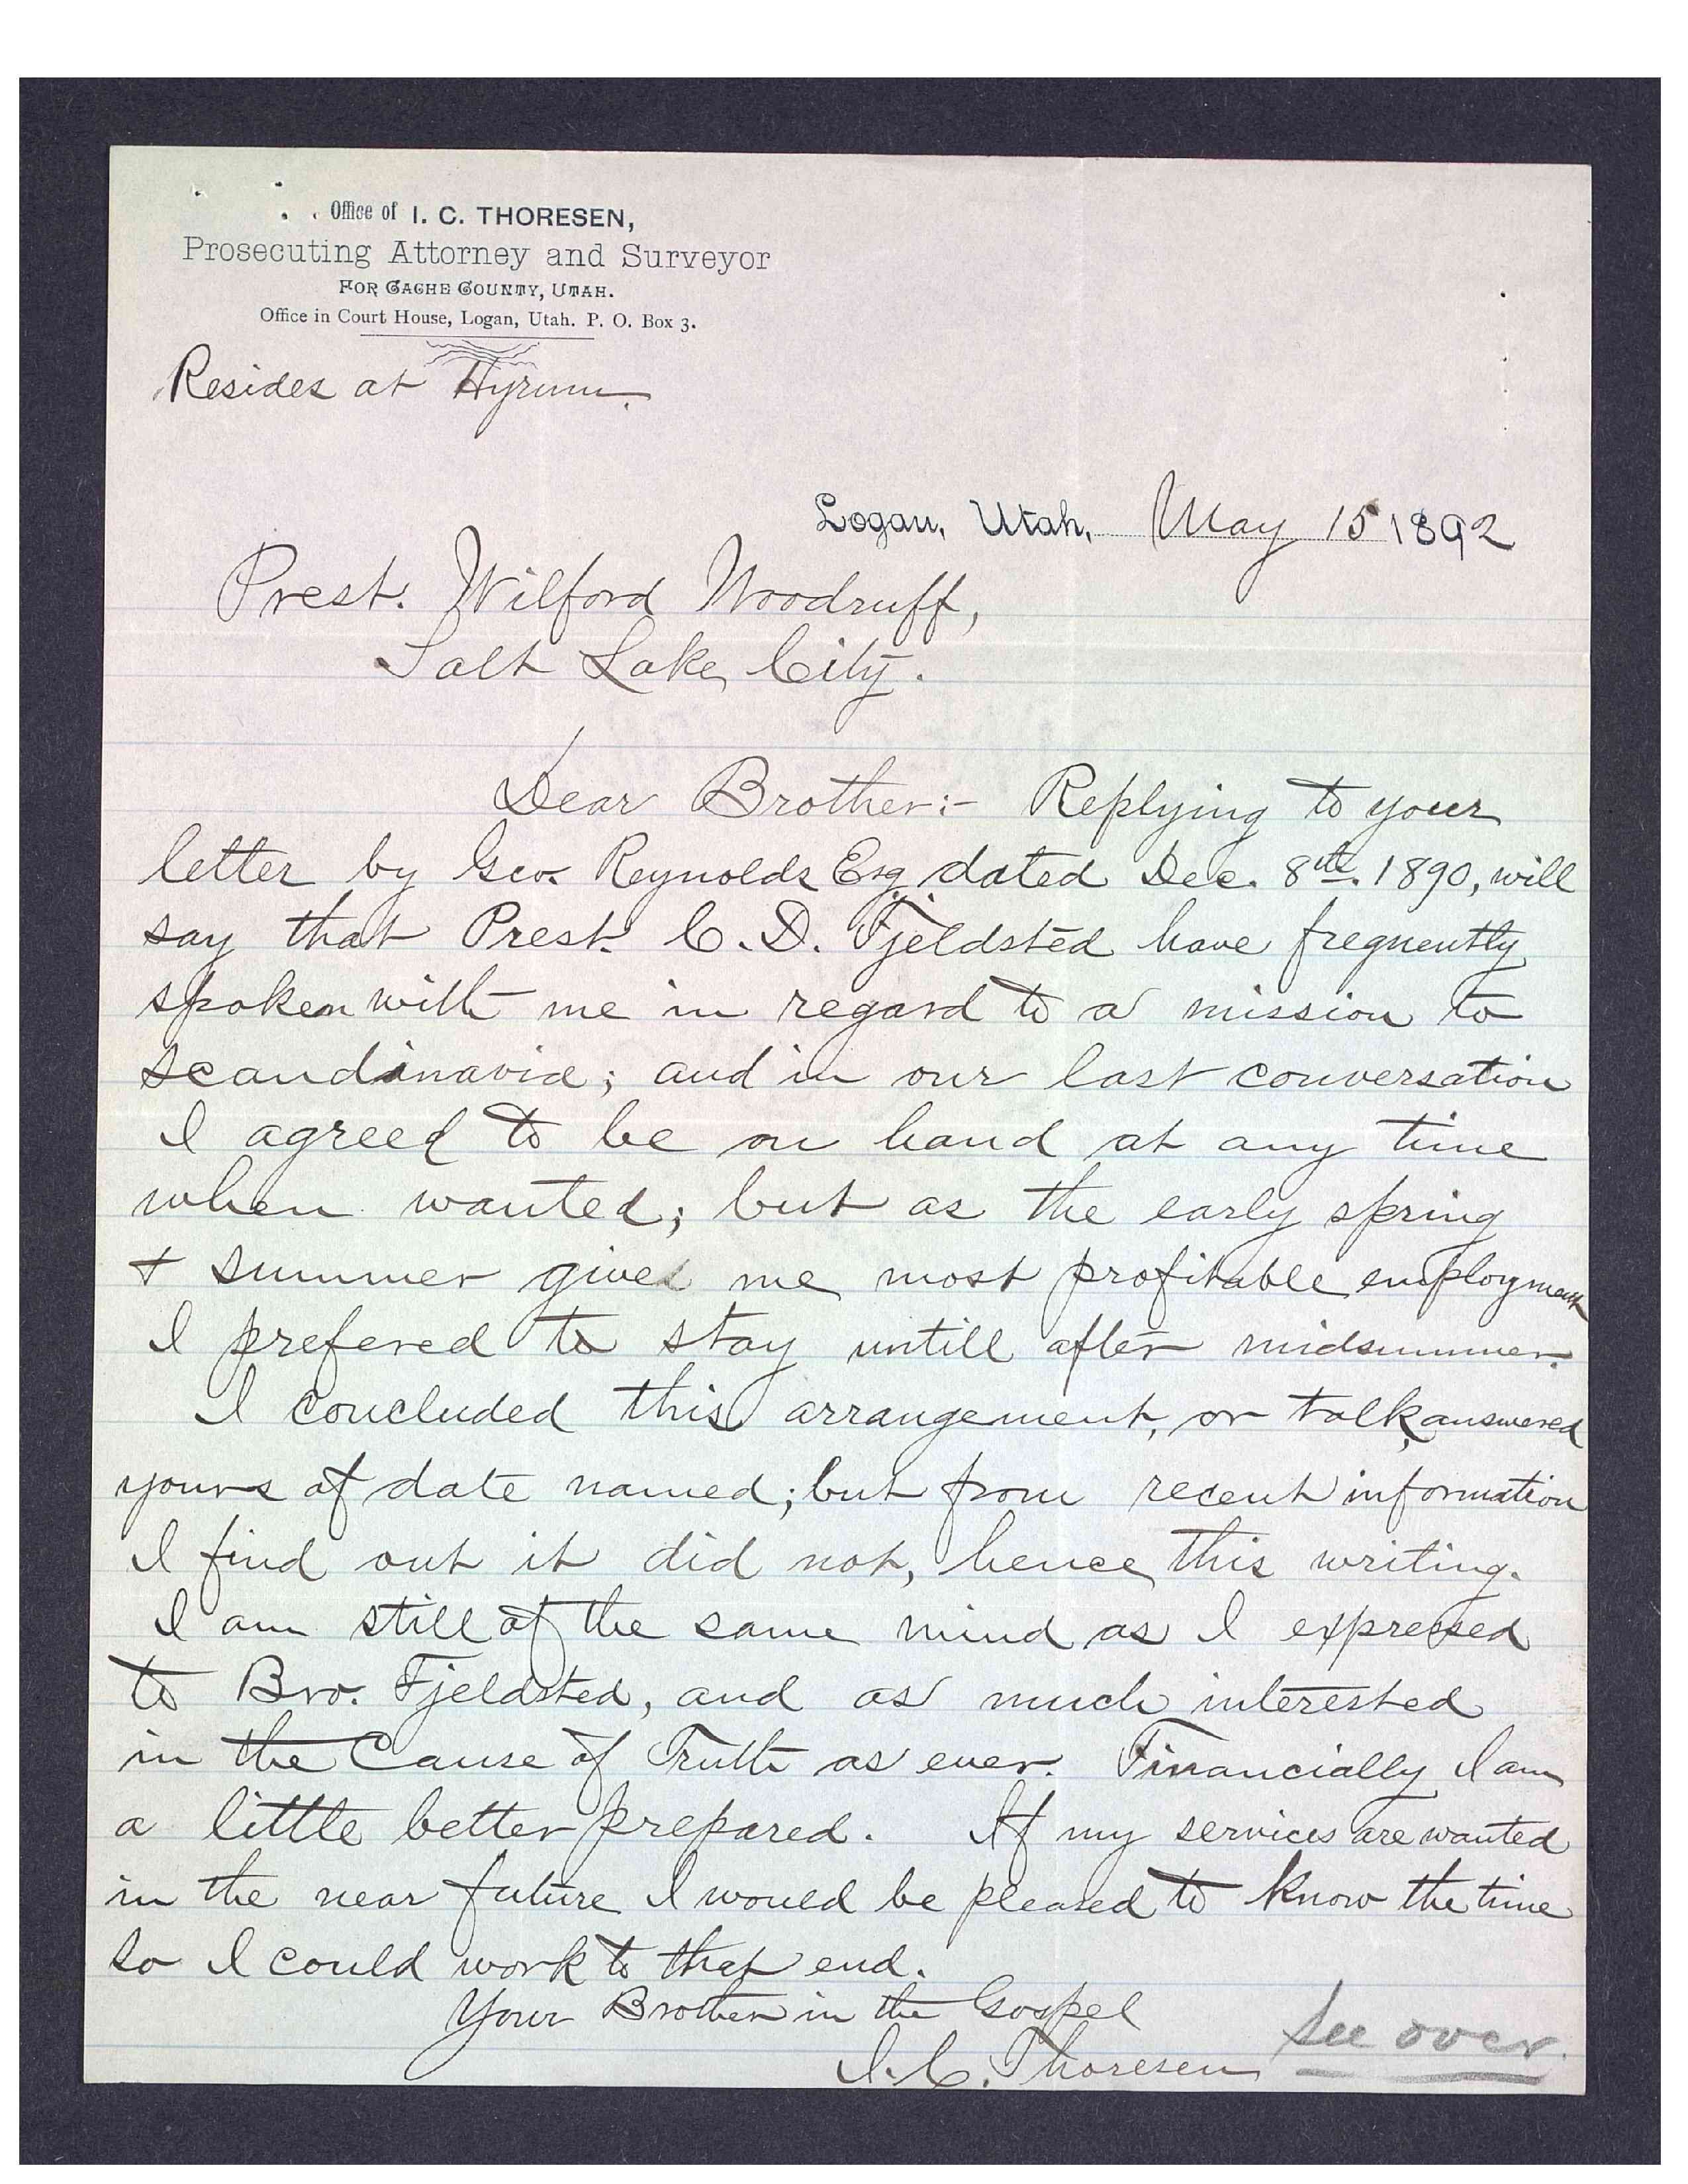 Office of I. C. THORESEN,
Prosecuting Attorney and Surveyor
FOR CACHE COUNTY, UTAH.
Office in Court House, Logan, Utah. P. O. Box 3.
Resides at Hyrum.
Logan, Utah, May 15 1892
Prest. Wilford Woodruff,
Salt Lake City.
Dear Brother:- Replying to your
letter by Geo. Reynolds Esq dated Dec. 8th. 1890, will
say that Prest. C. D. Fjeldsted have frequently
spoken with me in regard to a mission to
Scandinavia; and in our last conversation
I agreed to be on hand at any time
when wanted; but as the early spring
+ summer gives me most profitable employment
I prefered to stay untill after midsummer.
I concluded this arrangement, or talk, answered
yours of date named; but from recent information
I find out it did not, hence this writing.
I am still of the same mind as I expressed
to Bro. Fjeldsted, and as much interested
in the Cause of Truth as ever. Financially I am
a little better prepared. If my services are wanted
in the near future I would be pleased to know the time
so I could work to that end.
Your Brother in the Gospel
I. C. Thoresen
See over.